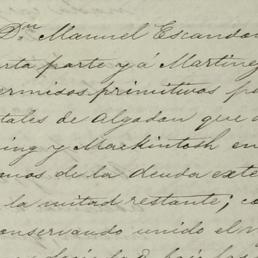 Dn. Manuel Escandon
parte y á Martinez
permisos primitivos
de algadon que
y Mackintosh en
de la deuda
la mitad restante;
conservando unido el